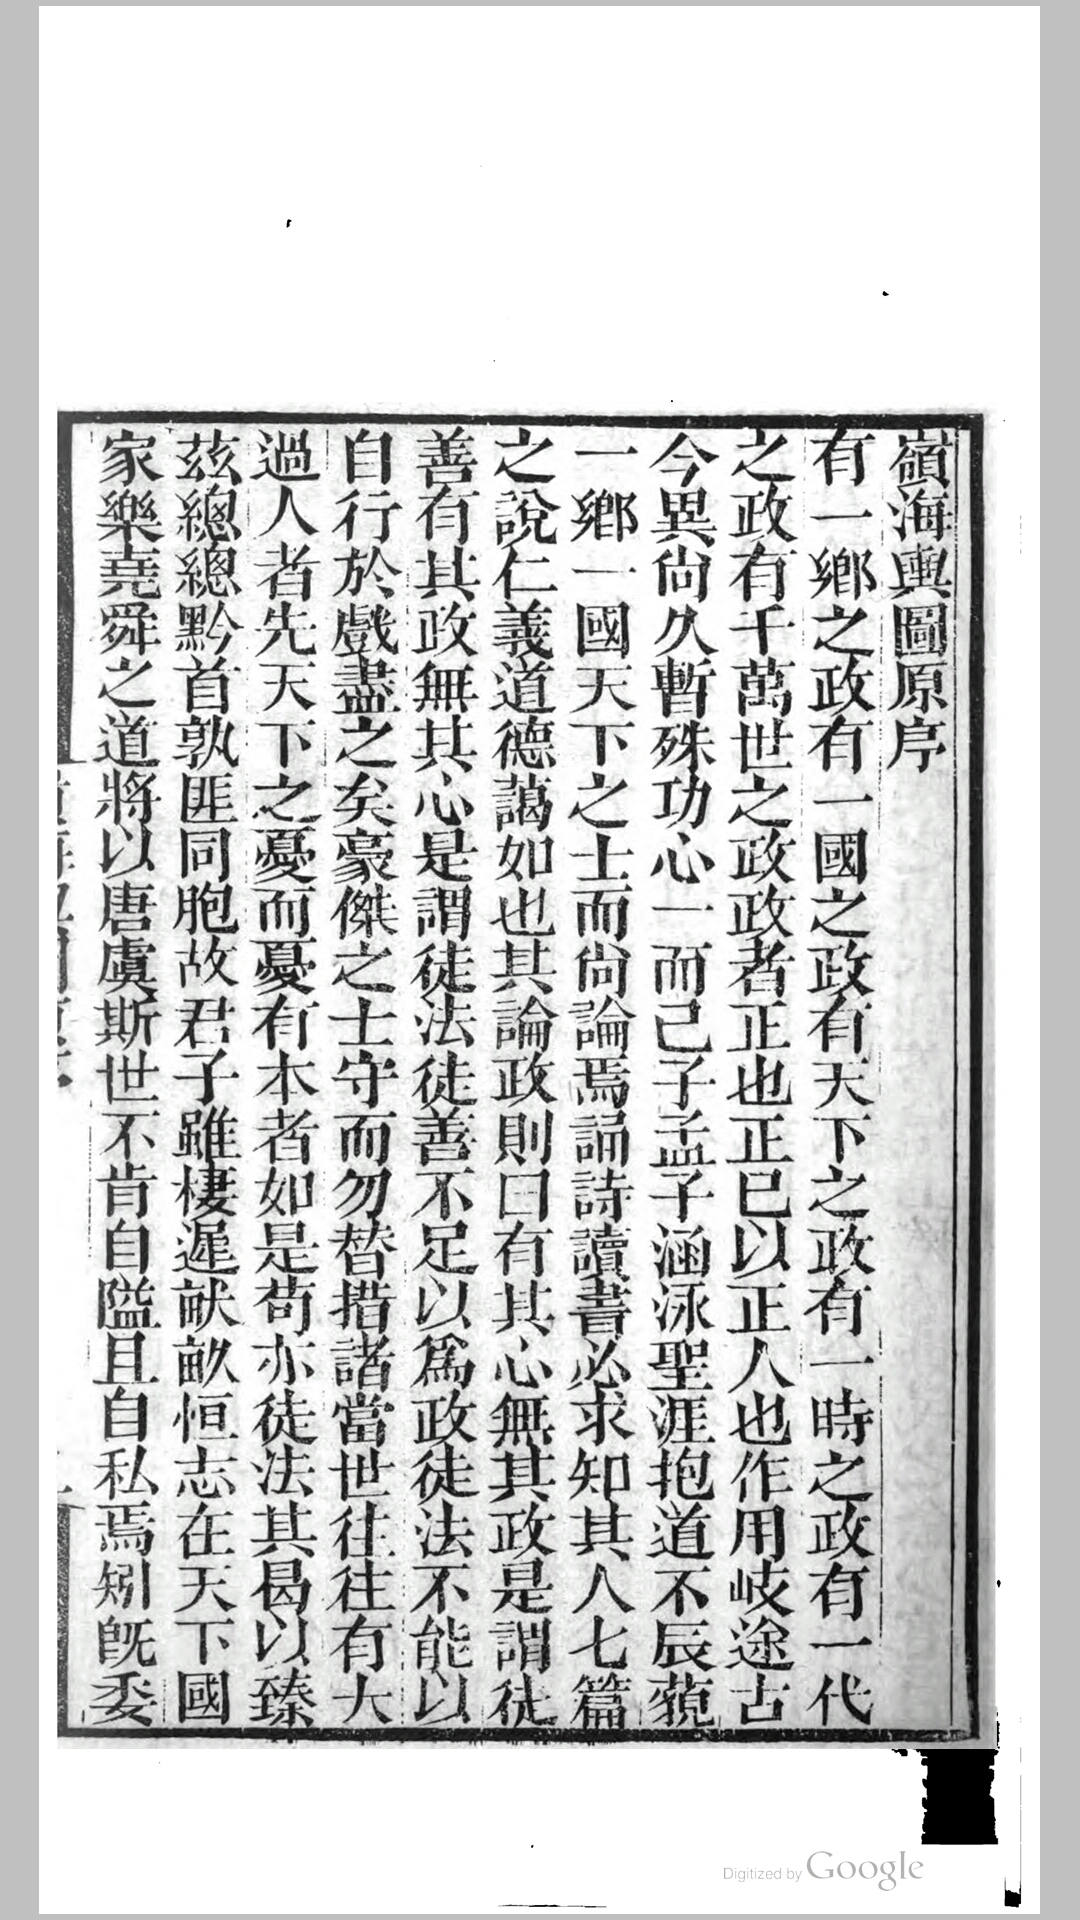 嶺海輿圖原序
有一鄉之政有一國之政有天下之政有一時之政有一代
之政有千萬世之政政者正也正已以正人也作用岐途古
今異尚久暫殊功心一而已子孟子涵泳聖涯抱道不辰藐
一鄉一國天下之士而尚論焉誦詩讀書必求知其人七篇
之說仁義道德藹如也其論政則曰有其心無其政是謂徒
善有其政無其心是謂徒法徒善不足以為政徒法不能以
自行於戲盡之矣豪傑之士守而勿替措諸當世往往有大
過人者先天下之憂而憂有本者如是茍亦徒法其曷以臻
茲總總黔首孰匪同胞故君子雖棲遲畎畝恒志在天下國
家樂堯舜之道將以唐虞斯世不肯自隘且自私焉矧旣委
Digitized by Google